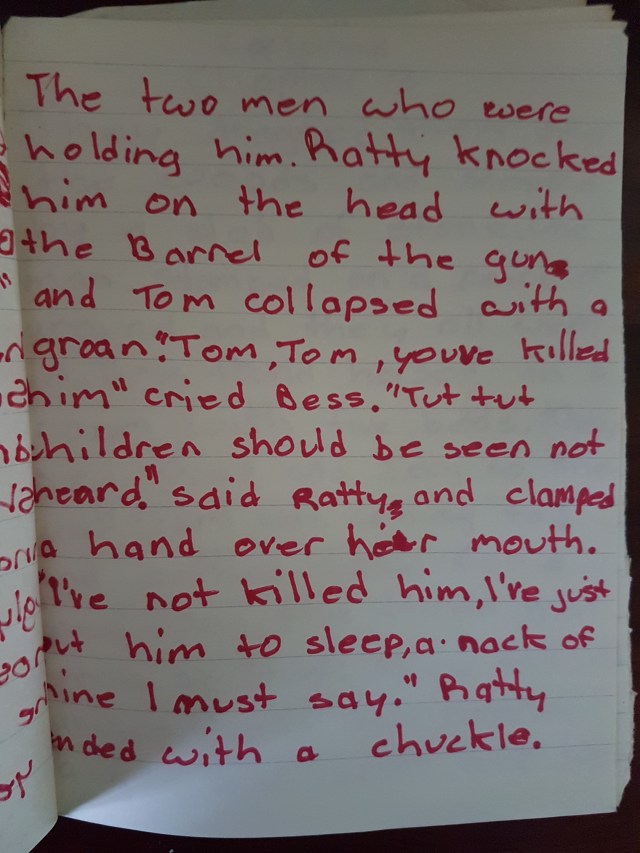 The two men who were
holding him. Ratty knocked
him on the head with
the Barrel of the gun
and Tom collapsed with a
groan. "Tom, Tom, youve killed
him" cried Bess. "Tut tut
children should be seen not
heard." said Ratty, and clamped
a hand over her mouth.
"I've not killed him, I've just
put him to sleep, a nack of
mine I must say." Ratty
ended with a chuckle.